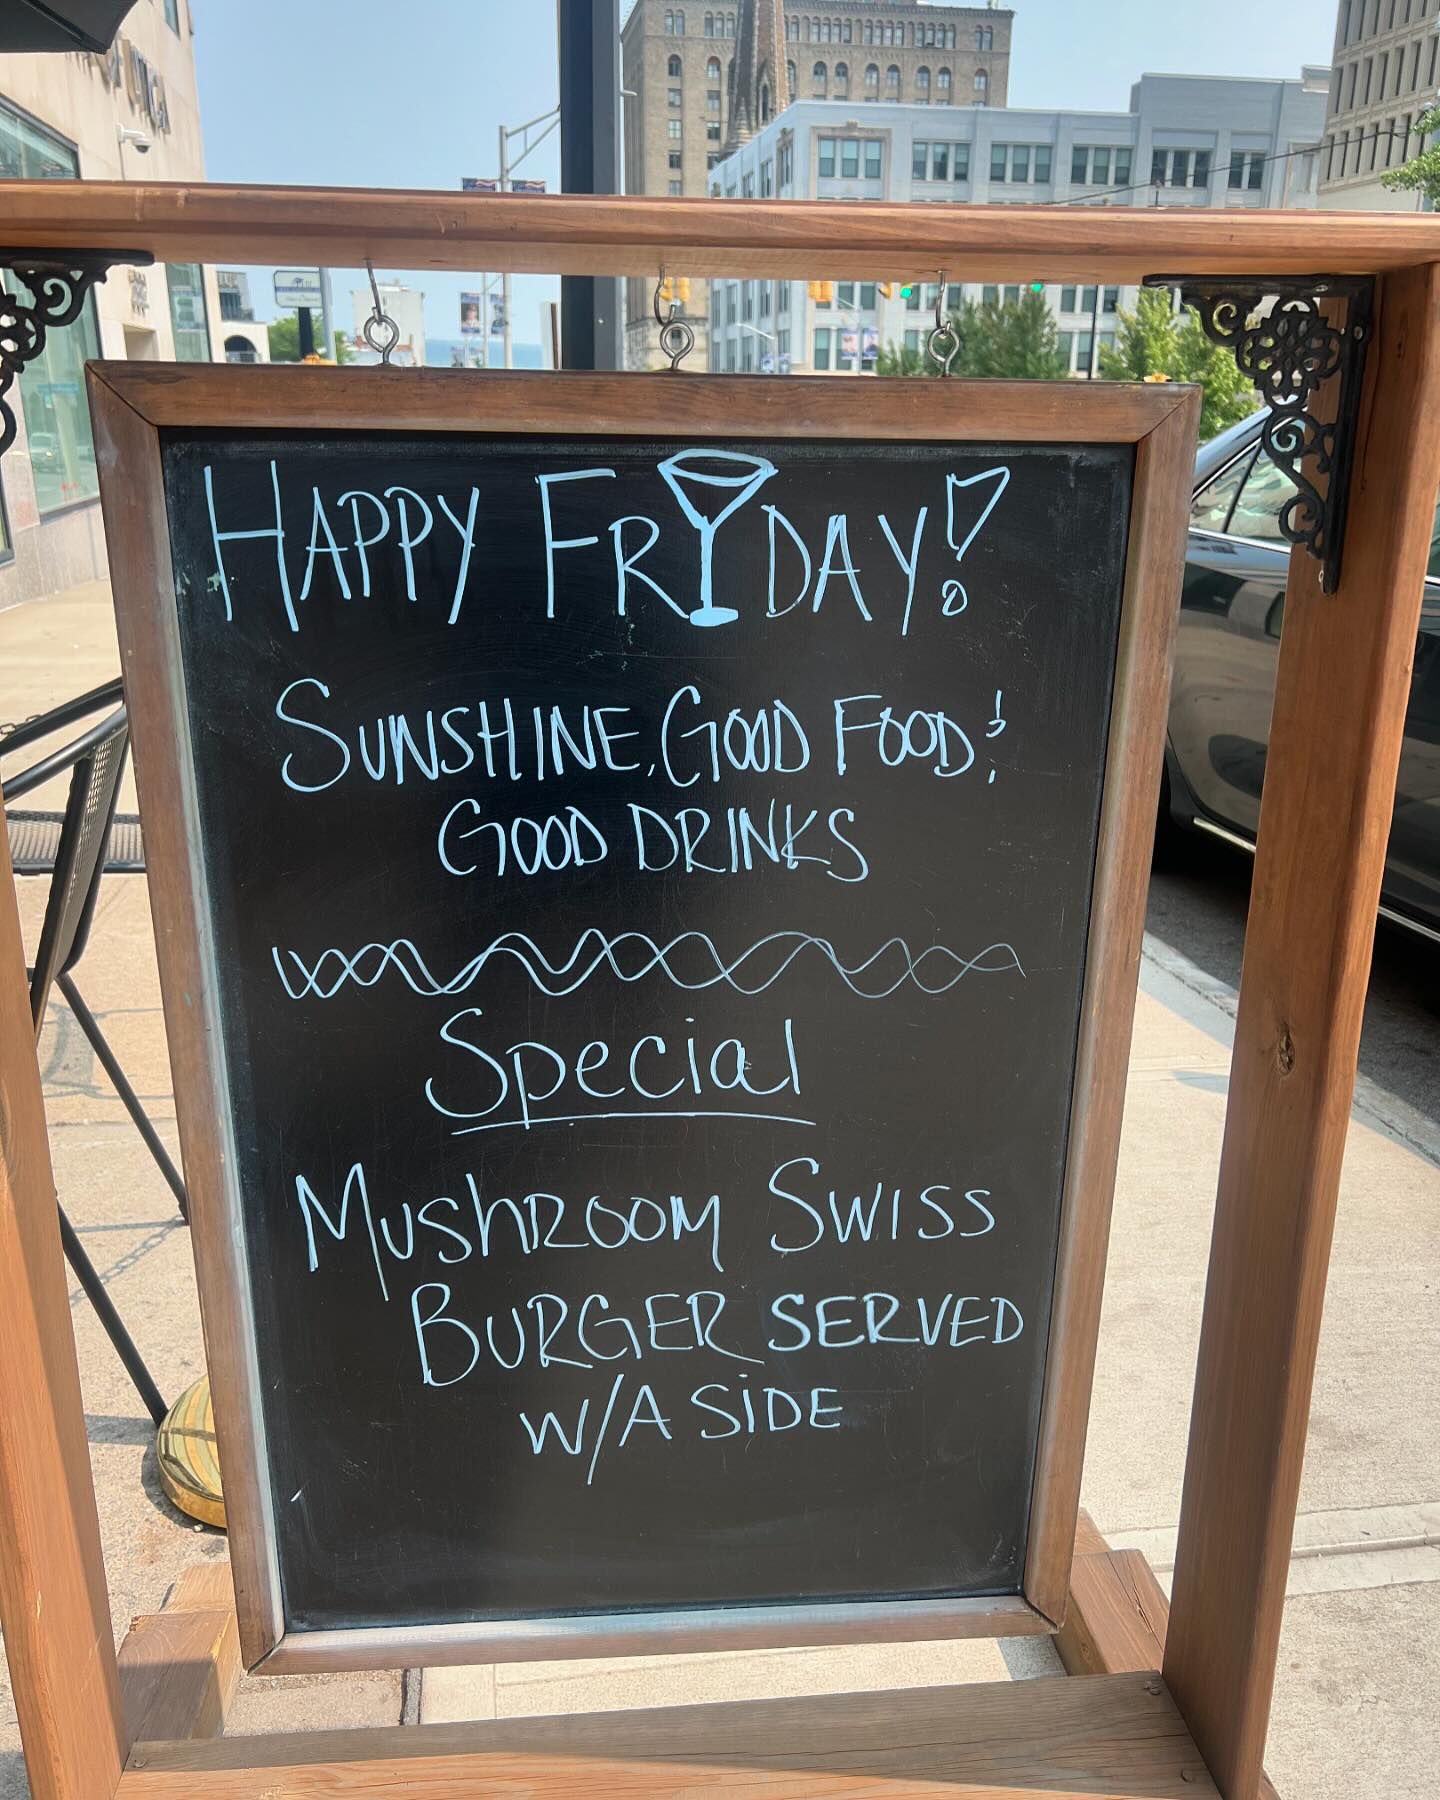 HAPPY FRIDAY!
SUNSHINE, GOOD FOOD &
GOOD DRINKS
Special
MUShROOM SWISS
BURGER SERVED
W/A SiDE